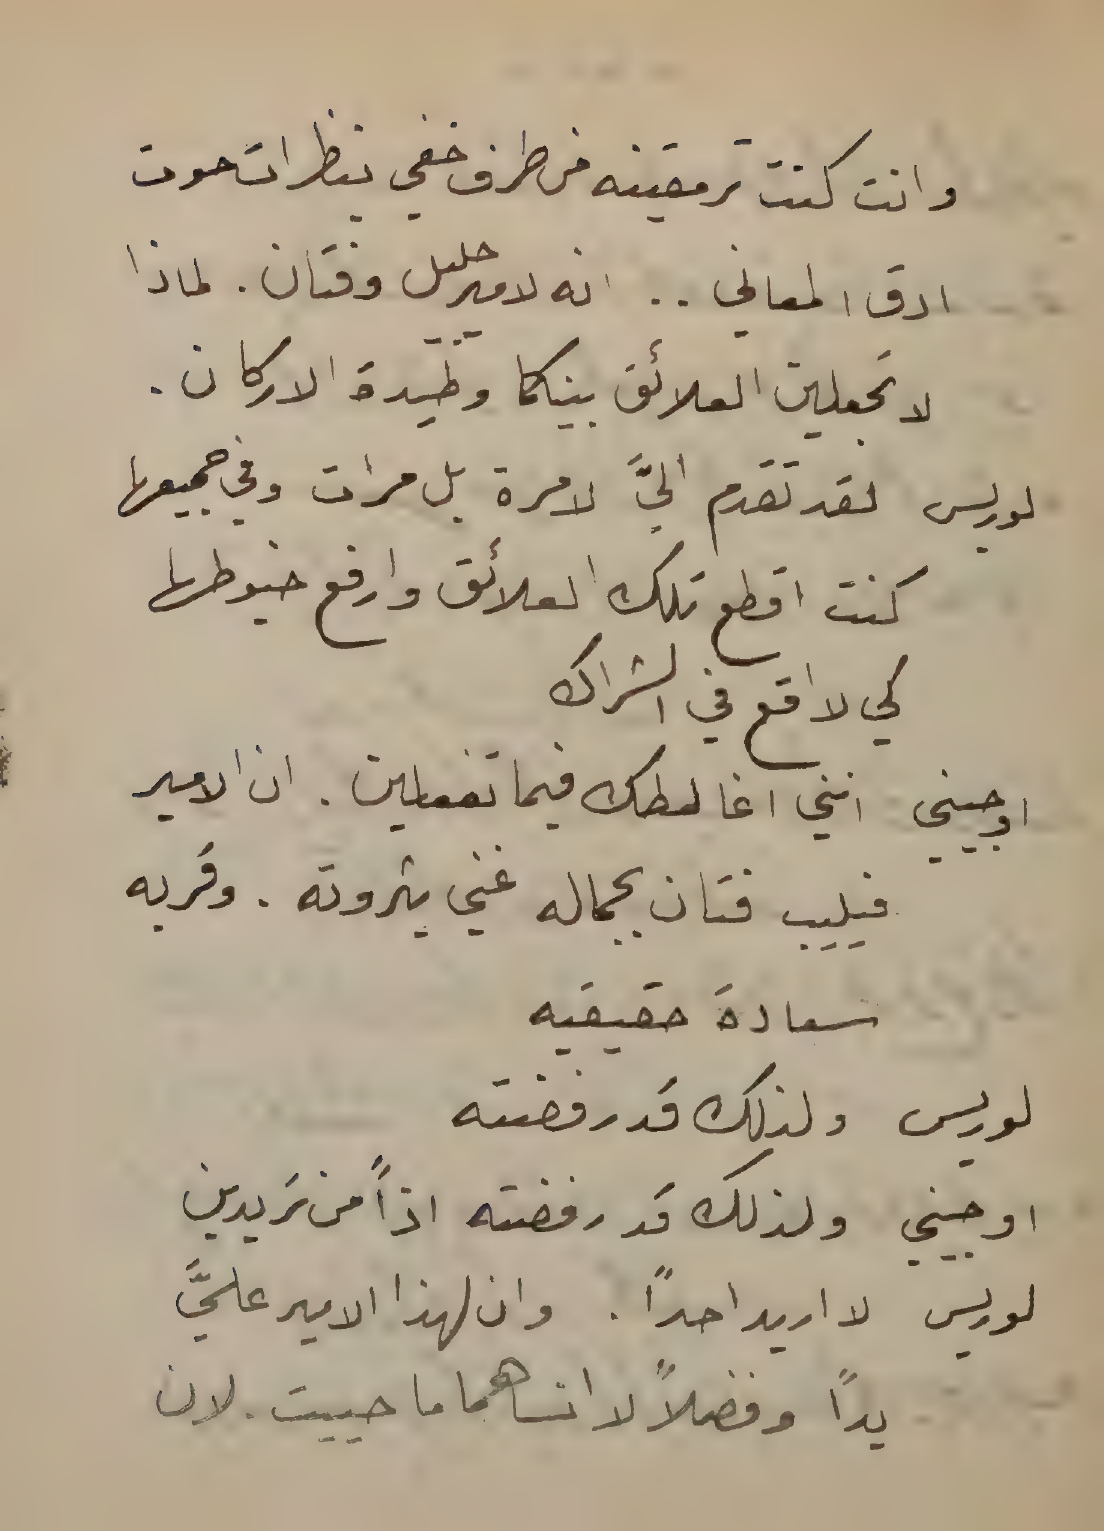 وانت كنت ترمقينه من طرف خفي بنظرات حوت
ادق المعاني .. انه لامير جليل وفتان . لماذا
لا تجعلين العلائق بينكما وطيدة الاركان .
لوريس لقد تقدم اليَّ لا مرة بل مرات وفي جميعها
كنت اقطع تلك العلائق وارفع خيوطها
كي لا اقع في الشراك
اوجيني انني اغالطك فيما تفعلين . ان الامير
فيليب فتان بجماله غني بثروته . وقربه
سعادة حقيقيه
لوريس ولذلك قد رفضته
اوجيني ولذلك قد رفضته اذاً من تريدين
لوريس لا اريد احداً . وان لهذا الامير عليَّ
يداً وفضلاً لا انساهما ما حييت . لان